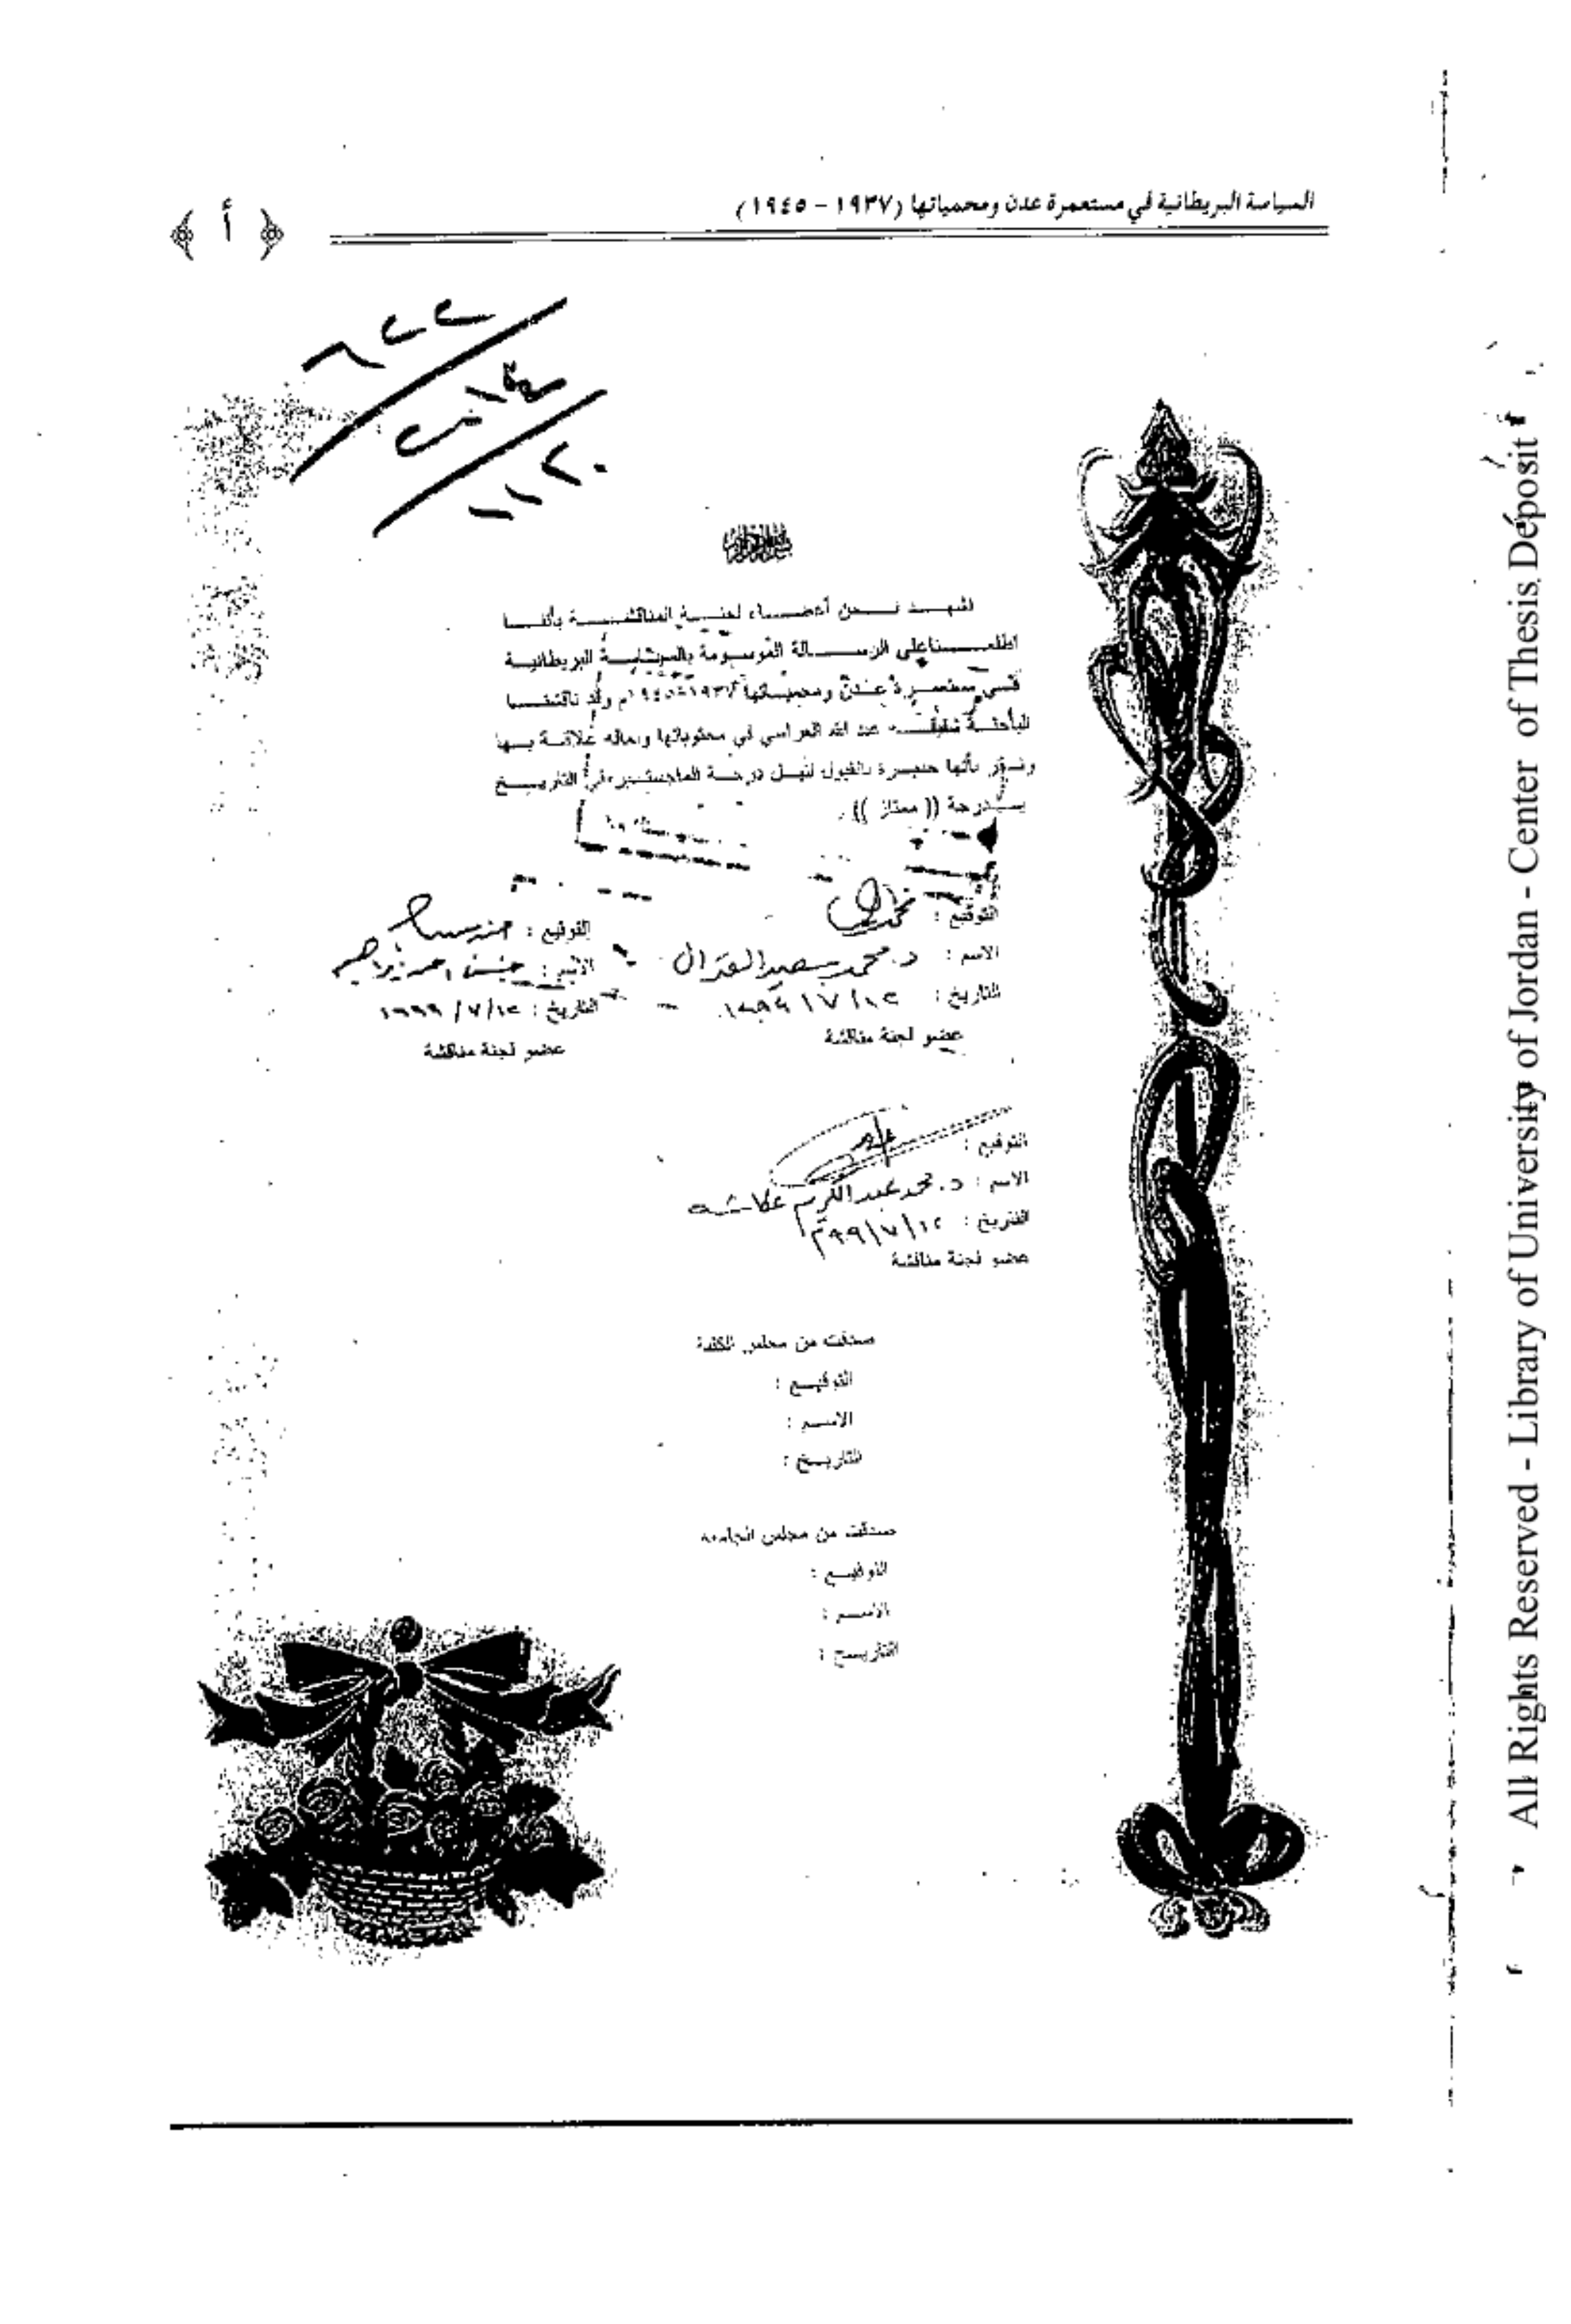 السياسة البريطانية في مستعمرة عدن ومحمياتها (١٩٣٧ - ١٩٤٥)
﴿ أ ﴾
نشهد نحن أعضاء لجنة المناقشة بأننا
اطلعنا على الرسالة الموسومة بالسياسة البريطانية
في مستعمرة عدن ومحمياتها ١٩٣٧-١٩٤٥م وقد ناقشنا
الباحثة شفيقة عبد الله العراسي في محتوياتها وماله علاقة بها
ونقر بأنها جديرة بالقبول لنيل درجة الماجستير في التاريخ
بدرجة (( ممتاز )) .
التوقيع :
الاسم : د. محمد سعيد القدال
التاريخ : ١٩٩٩/٧/١٢
عضو لجنة مناقشة
التوقيع :
الاسم : حسن احمد ابراهيم
التاريخ : ١٩٩٩/٧/١٢
عضو لجنة مناقشة
التوقيع :
الاسم : د. محمد عبدالكريم عكاشه
التاريخ : ٩٩/٧/١٢م
عضو لجنة مناقشة
صدقت من مجلس الكلية
التوقيع :
الاسم :
التاريخ :
صدقت من مجلس الجامعة
التوقيع :
الاسم :
التاريخ :
All Rights Reserved - Library of University of Jordan - Center of Thesis Deposit